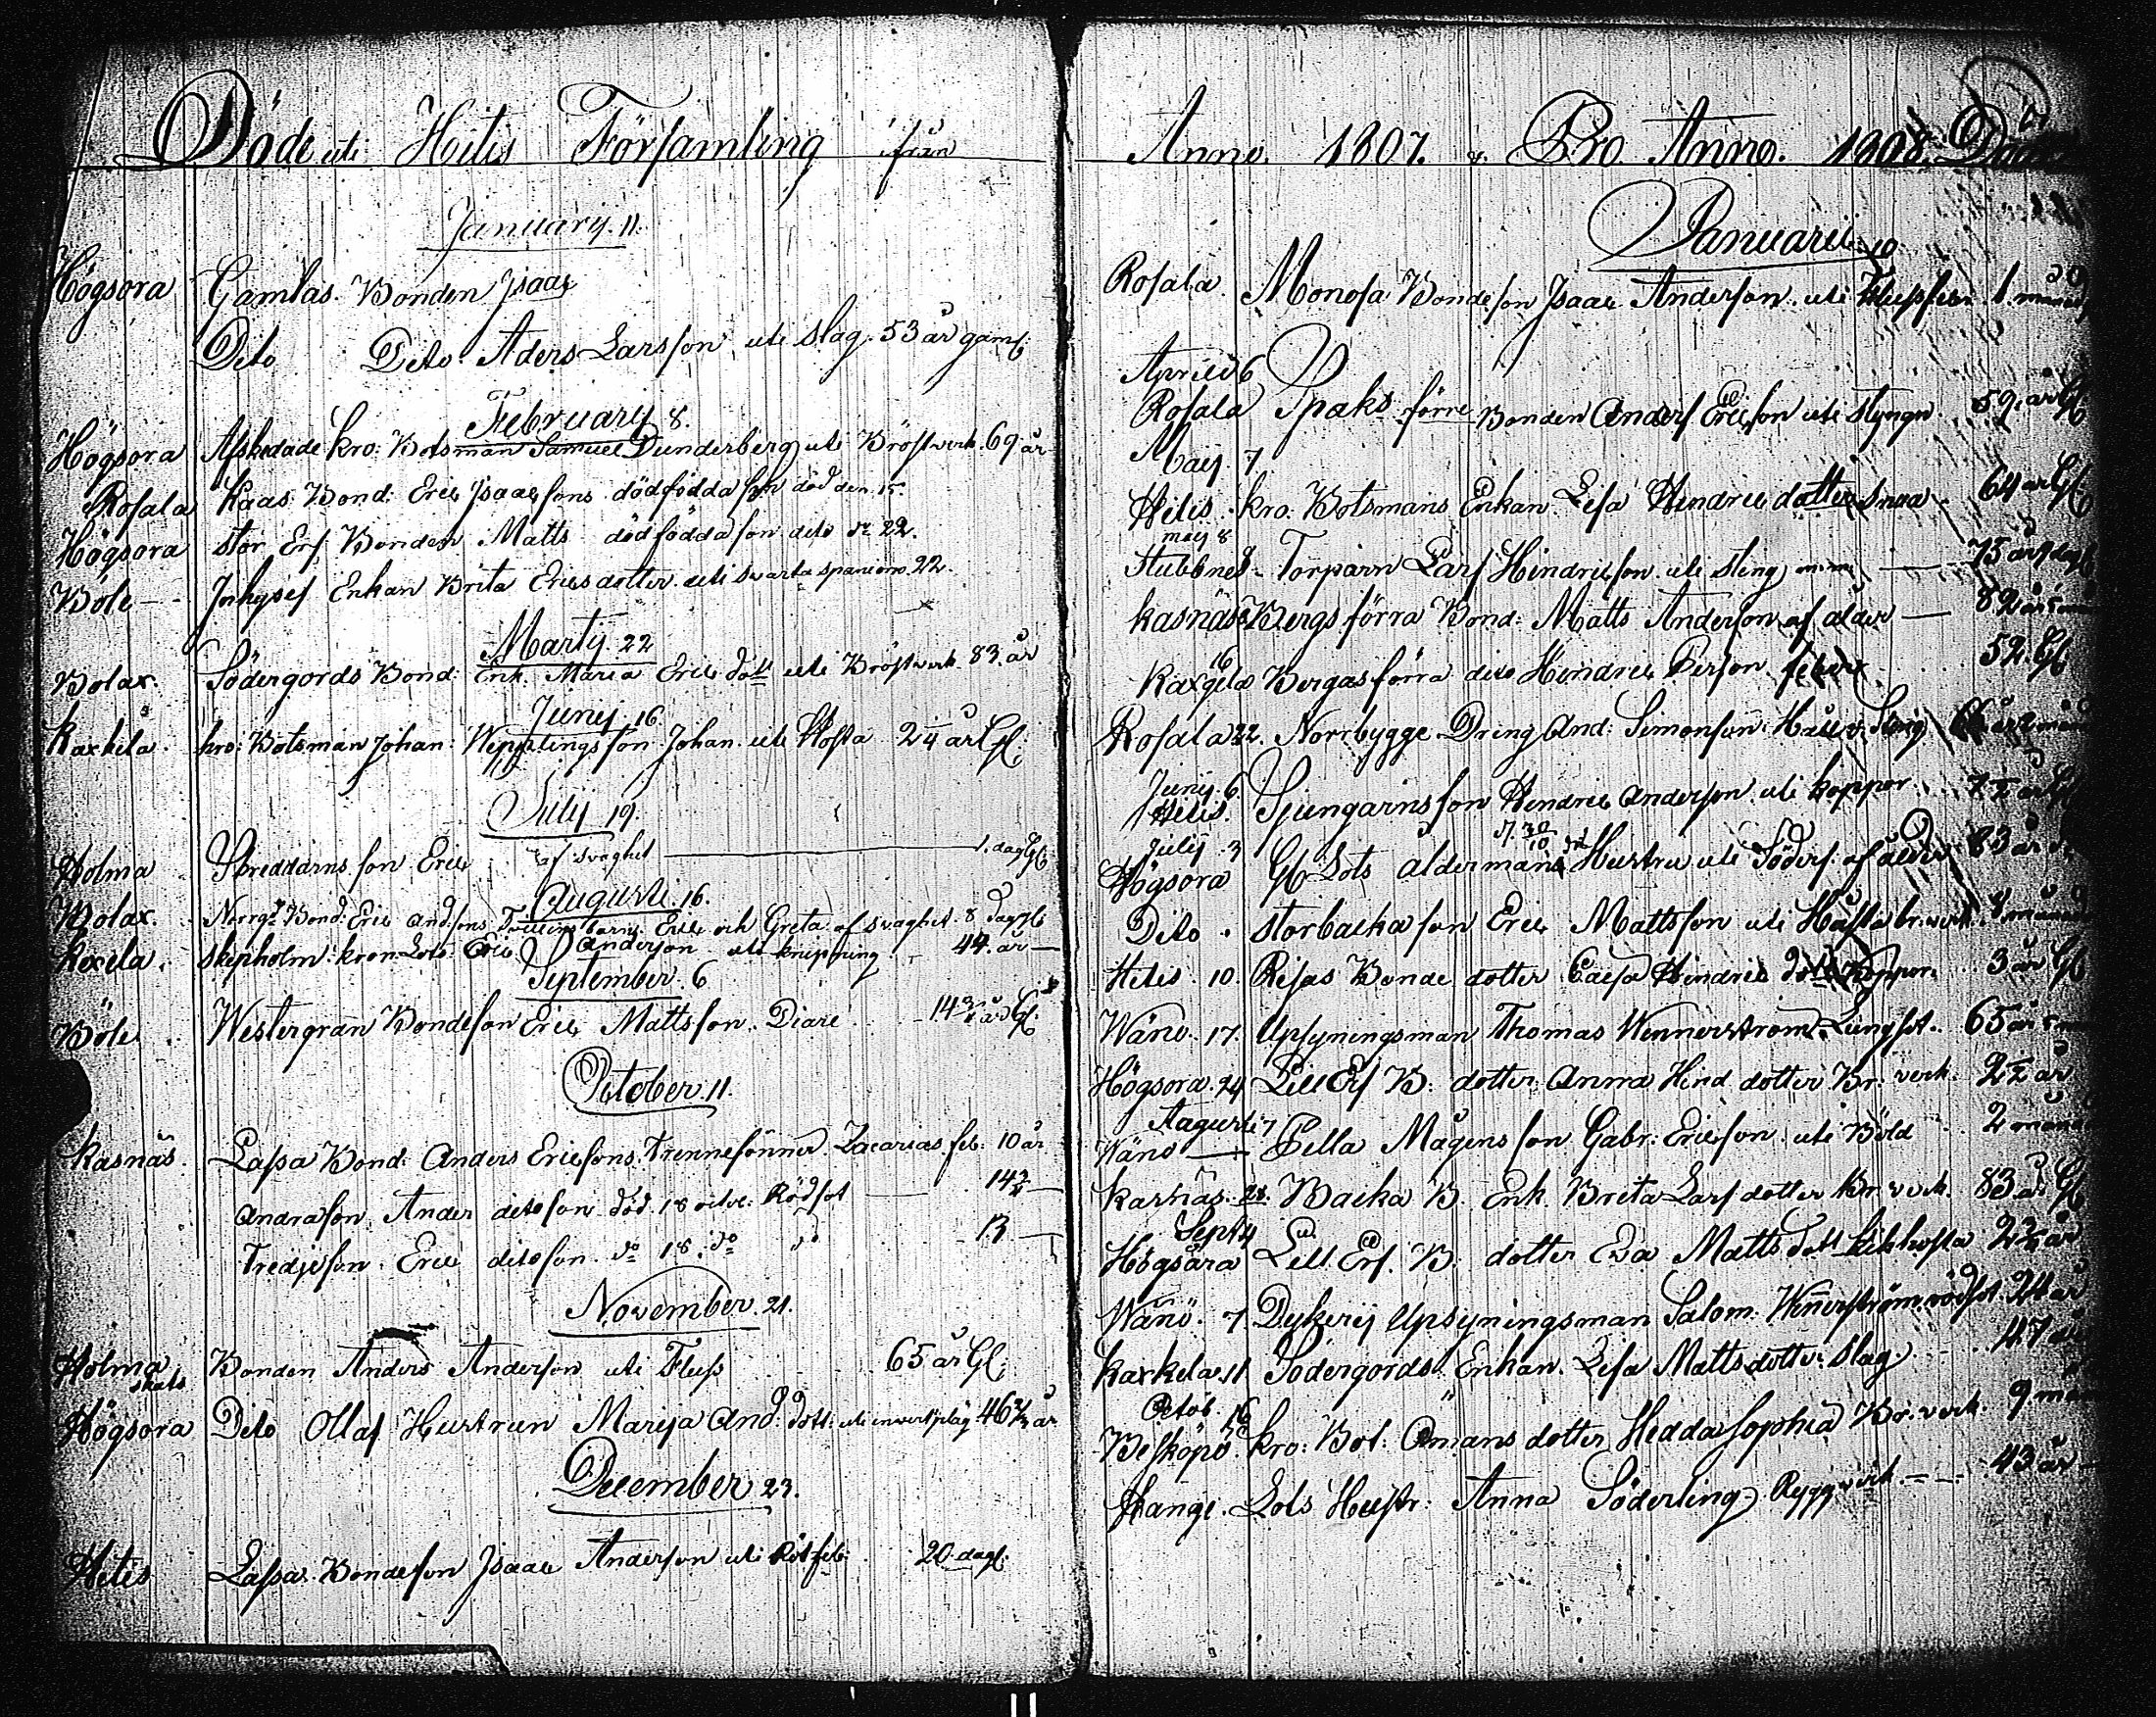 Döde uti Hitis Församling ifrån
January. 11.
Högsora Gamlas Bonden Isaac
Dito Dito Aders Larsson uti slag. 53 år gaml:
February 8.
Högsora Afskedade kro: Botsman Samuel Dunderberg uti Bröstverk. 69 år
Rosala Kaas Bond: Eric Isaacsons dödfödda son död den. 15.
Högsora stor Ers Bonden Matts dödfödda son dito dn 22.
Böle Enkan Brita Ericsdotter uti svarta 22.
Martij. 22
Bolax. Södergords Bond: Enk. Maria Erics dott uti Bröstverk. 83. år
Junij 16.
Kaxkila. kro: Botsman Johan: Wepplingsson Johan uti Hosta 2 1/4 år Gl:
Julij 19.
Holma Skreddarns son Eric af svaghet 1. dag Gl:
Augusti. 16.
Bolax. Norrg: Bond: Eric Andsons Tvilling barn: Eric och Greta af svaghet. 8 dag Gl
Koxila. skepholm: kron Lots: Eric Anderson uti 44. år
September. 6
Böle Westergran Bondeson Eric Mattsson. Diaré 14 3/4 år Gl:
October. 11.
Kasnäs. Lassa Bond: Anders Ericsons Trennesönner. Zacarias feb: 10 år
Andrason. Ander ditoson död. 18 octor: Rödsot 14 3/4
Tredjeson. Eric ditoson. do 18. do do 13
November. 21.
Holma skats Bonden Anders Anderson uti Fluss 65 år Gl:
Högsora Dito Ollas Hustrun Marija And: dott: uti 46 år
December 23.
Hitis Lassa. Bondeson Isaac Anderson uti 20. dag:
Anno. 1807. & Pro Anno. 1808.
Januarii 10
Rosala Monosa Bondeson Isaac Anderson. uti 1. månad
Aprilis 6
Rosala Spaks förre Bonden Anders Ericson uti styngn 59. år Gl
Maij. 7
Hitis. kro. Botsmans Enkan Lisa Hindric dotter 64 år Gl
maij 8
Stubbnes Torparn Lars Hindricson. uti sting 75 år
Kasnäs Bergs förra Bond: Matts Anderson af ålder 82 år
16
Kaxgila Bergas förra dito Hindric Person feber 52. Gl
Rosala 22. Norrbygge Dreng And: Simonson Håll o. Sting
Junij. 6.
Hitis. Sjungarns son Hindric Anderson. uti koppor 7 1/2 år
Julij 3
Högsora Gl Lots aldermans Hustru uti Söders. af ålder 83 år
Dito. storbacka son Eric Mattsson uti Håsta br:verk 8 månad
Hitis 10. Risas Bonde dotter Caisa Hindric dott Koppor. 3 år Gl
Wänö. 17. Upsyningsman Thomas Wennerström Lungsot. 65 år
Högsora. 24 Lill Ers B: dotter Anna Hind dotter Br: verk. 2 1/2 år
Augusti 7
Wänö Pella Mågens son Gabr: Ericson uti Böld 2 månad
Kasnäs. 28. Backa B. Enk. Brita Lars dotter Br: verk. 83 år Gl
Sept 4
Högsåra Lill Ers. B. dotter Eva Matts dott kikhosta 2 3/4 år
Wänö. 7 Dykerij Upsyningsman Salom. Wennerström rödsot 24 år
Kaxkila 11 Södergords Enkan. Lisa Matts dotter slag. 47 år
Octob. 16
Bisköpö. kro: Bot: Ömans dotter Hedda Sophia Br: verk. 9. mån
Hangö. Lots Hustr: Anna Söderling Ryggverk 43 år